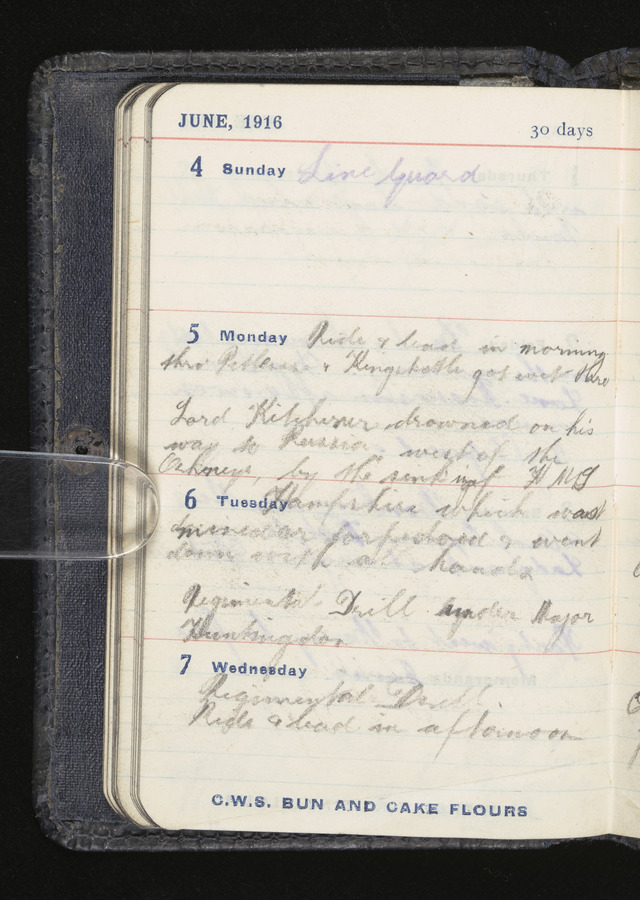 JUNE, 1916 30 days
4 Sunday Line Guard
5 Monday Ride & lead in morning
thro' Pitlessie & Kingskettle got wet
Lord Kitchener drowned on his
way to Russia west of the
Orkneys, by the sinking of HMS
6 Tuesday Hampshire which was
mined or torpedoed & went
down with all hands
Regimental Drill under Major
Huntingdon
7 Wednesday
Regimental Drill
Ride & lead in afternoon
C.W.S. BUN AND CAKE FLOURS